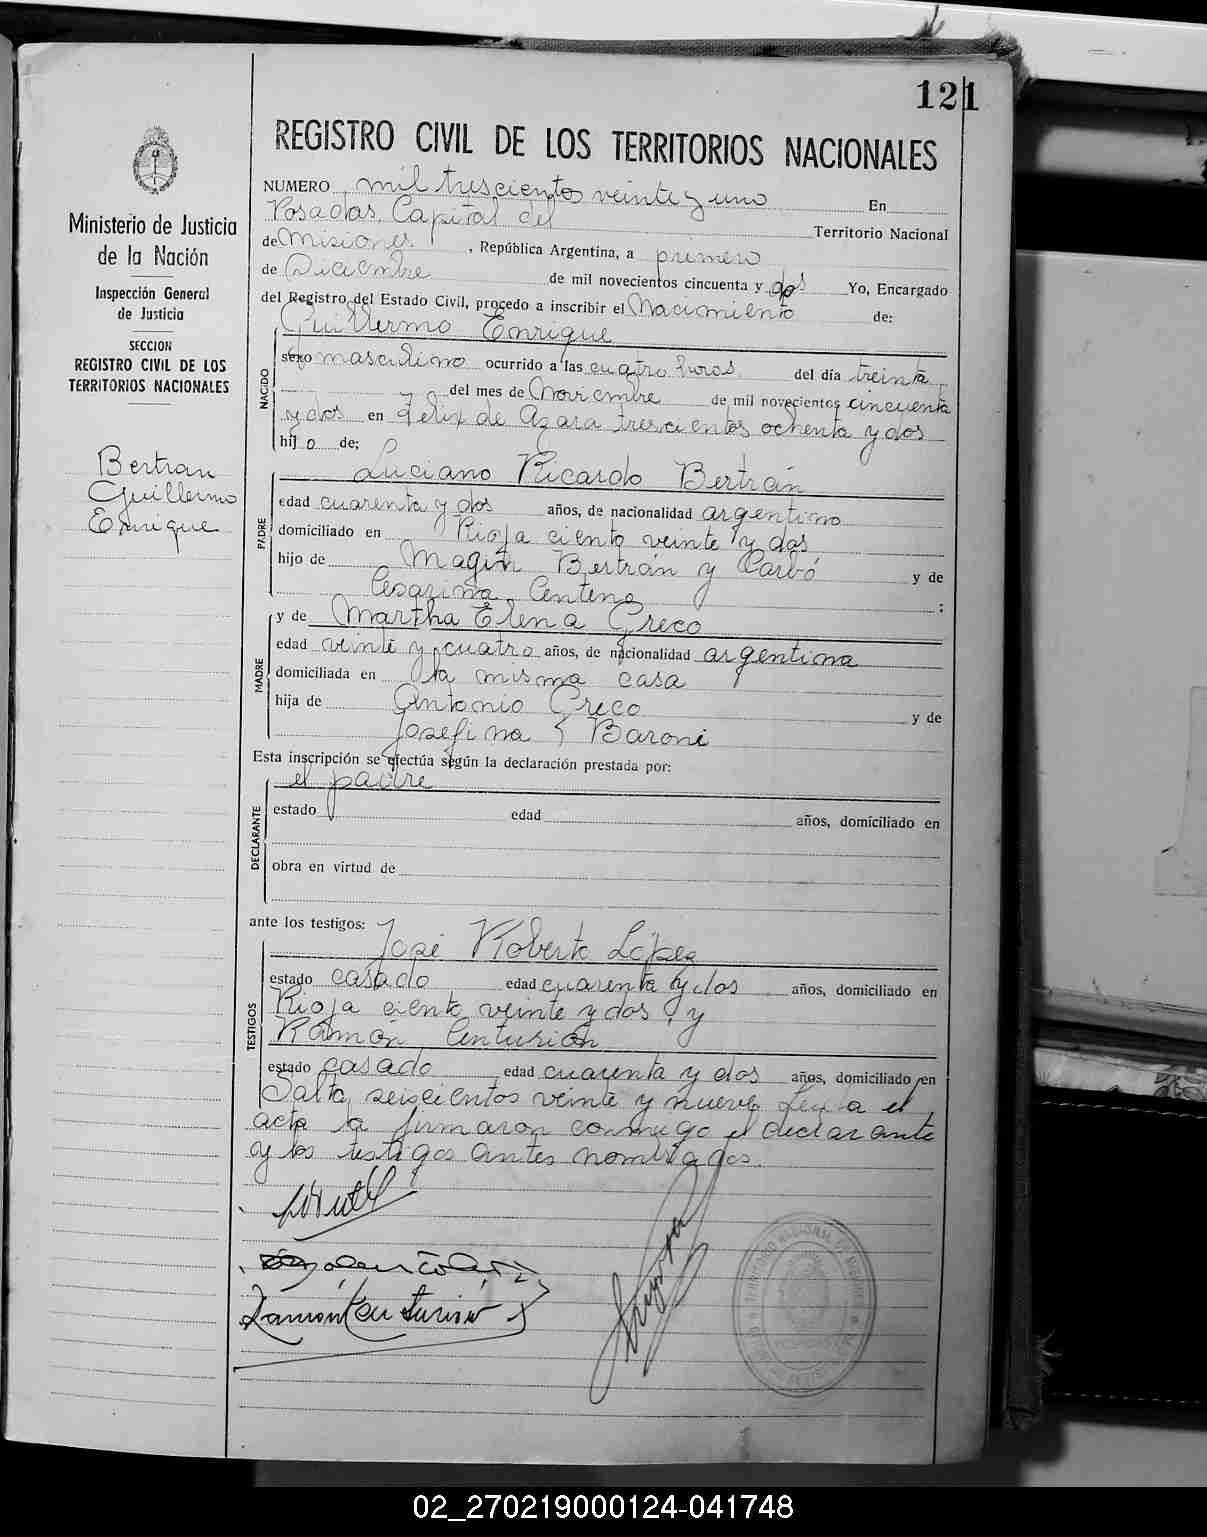 121
REGISTRO CIVIL DE LOS TERRITORIOS NACIONALES
Ministerio de Justicia
de la Nación
Inspección General
de Justicia
SECCION
REGISTRO CIVIL DE LOS
TERRITORIOS NACIONALES
Bertran
Guillermo
Enrique
NUMERO mil trescientos veinte y uno En
Posadas, Capital del Territorio Nacional
de Misiones, República Argentina, a primero
de Diciembre de mil novecientos cincuenta y dos Yo, Encargado
del Registro del Estado Civil, procedo a inscribir el Nacimiento de:
Guillermo Enrique
NACIDO
sexo masculino ocurrido a las cuatro horas del día treinta
del mes de Noviembre de mil novecientos cincuenta
y dos en Felix de Azara trescientos ochenta y dos
hijo de;
Luciano Ricardo Bertrán
PADRE
edad cuarenta y dos años, de nacionalidad argentino
domiciliado en Rioja ciento veinte y dos
hijo de Magin Bertrán y Carbó y de
Cesarina Centeno :
y de Martha Elena Greco
MADRE
edad veinte y cuatro años, de nacionalidad argentina
domiciliada en la misma casa
hija de Antonio Greco y de
Josefina Baroni
Esta inscripción se efectúa según la declaración prestada por:
el padre
DECLARANTE
estado edad años, domiciliado en
obra en virtud de
ante los testigos:
José Roberto López
TESTIGOS
estado casado edad cuarenta y dos años, domiciliado en
Rioja ciento veinte y dos y
Ramón Centurión
estado casado edad cuarenta y dos años, domiciliado en
Salta seiscientos veinte y nueve. Leida el
acta la firmaron conmigo el declarante
y los testigos antes nombrados.
Ramón Centurión
02_270219000124-041748